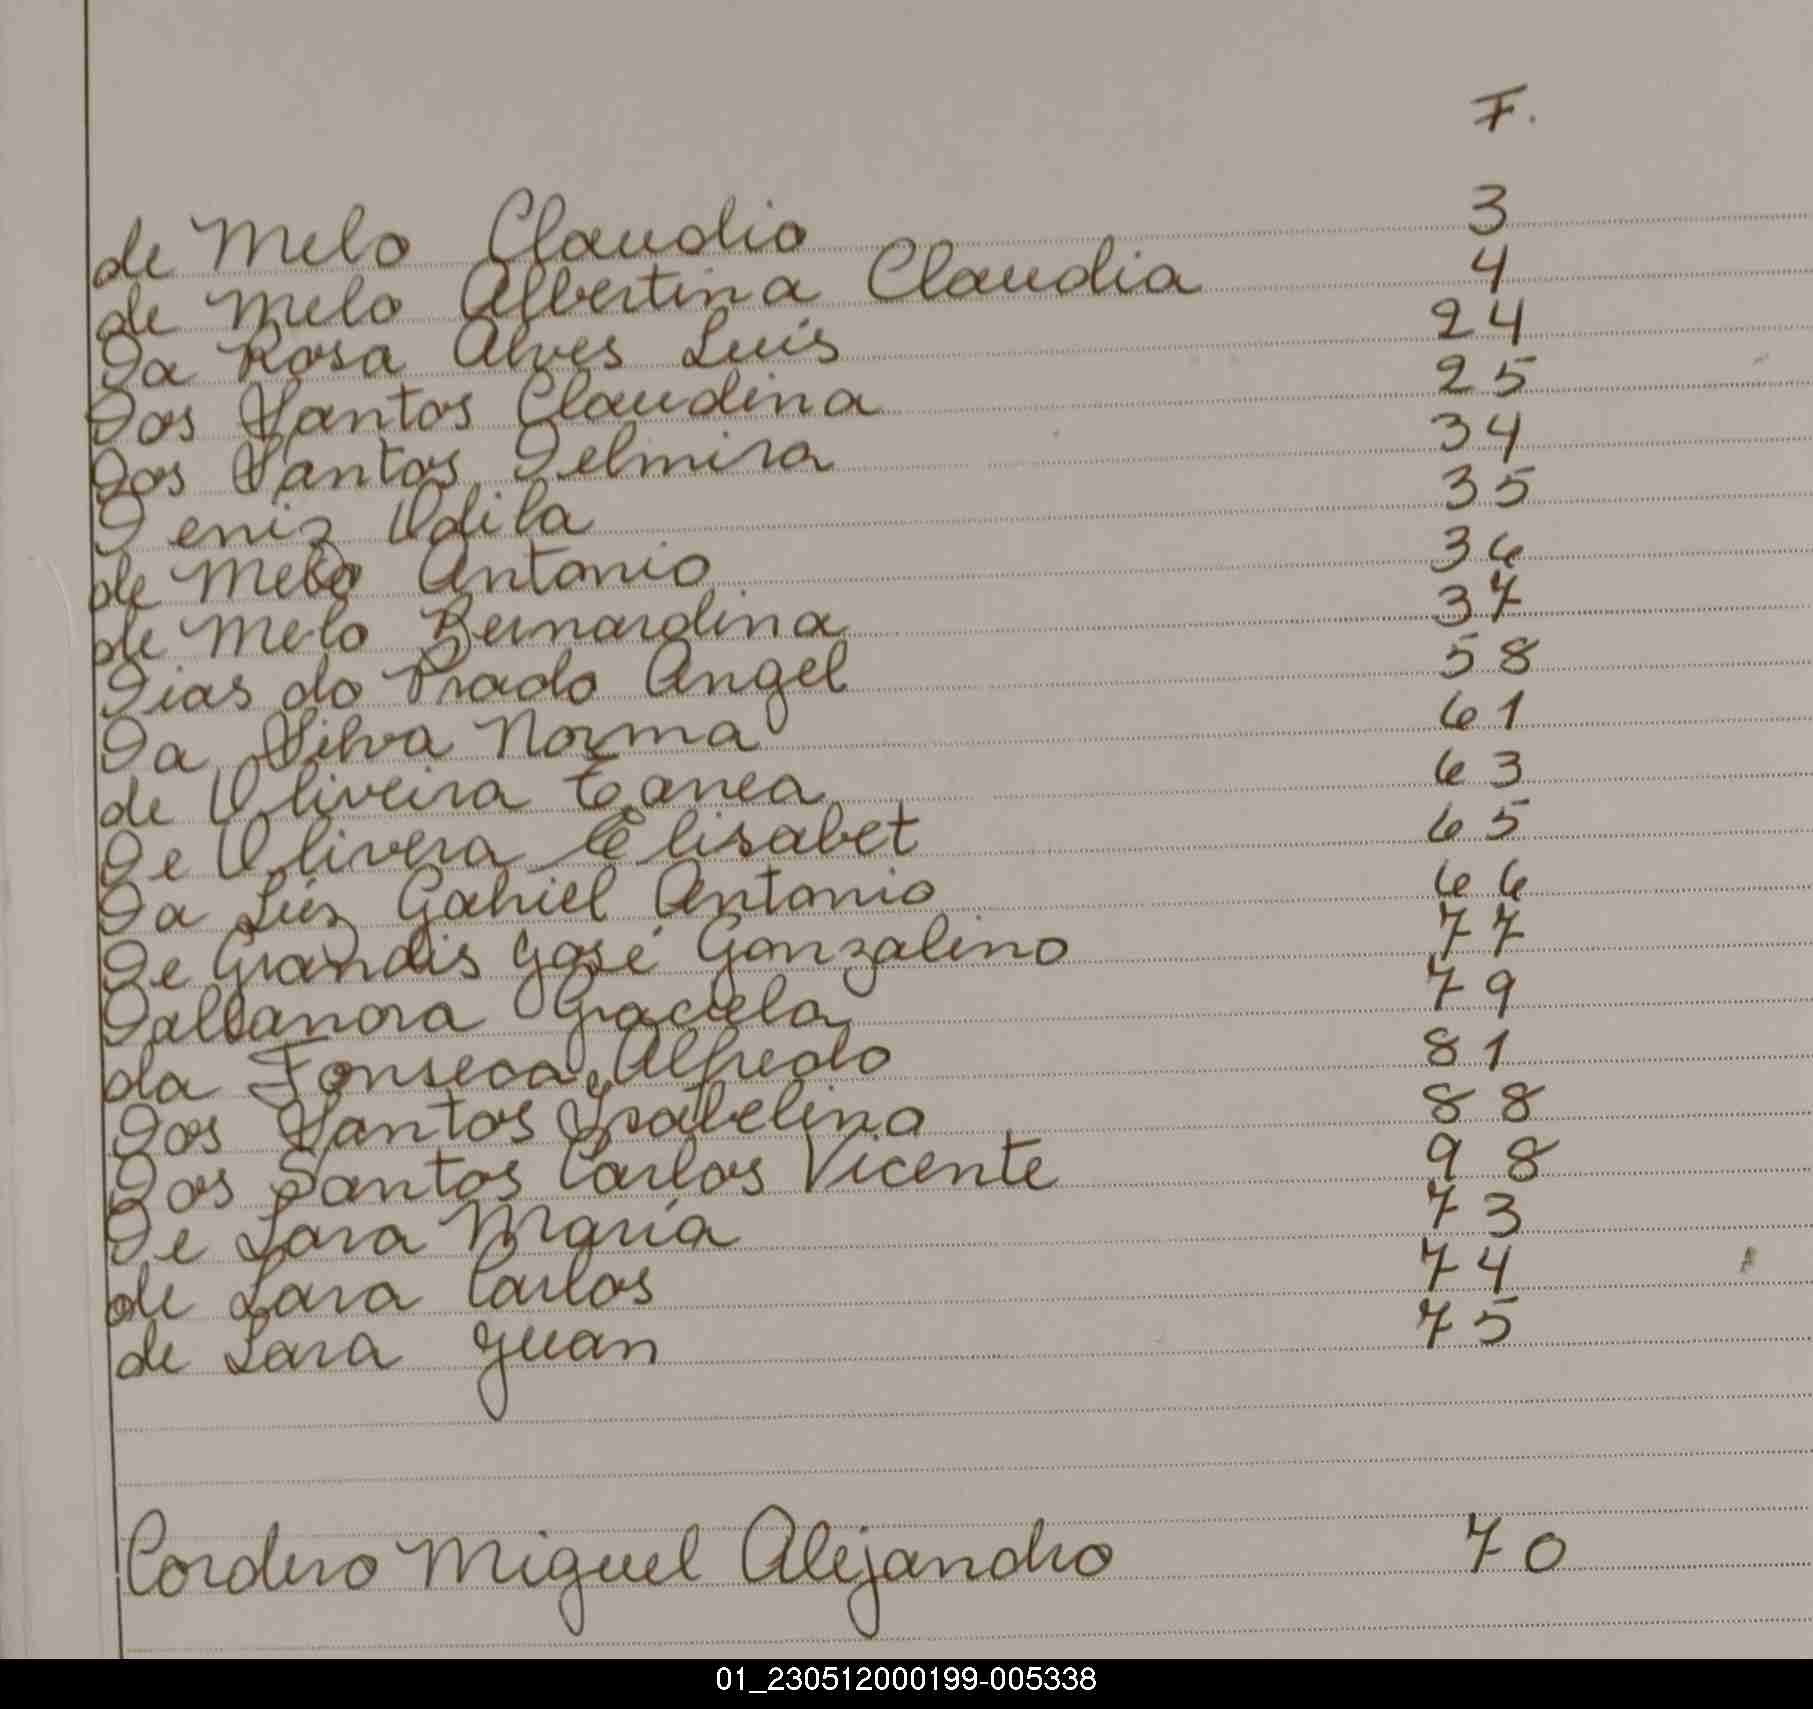 F.
de Melo Claudio 3
de Melo Albertina Claudia 4
Da Rosa Alves Luis 24
Dos Santos Claudina 25
Dos Santos Delmira 34
Deniz Odila 35
de Melo Antonio 36
de Melo Bernardina 37
Dias do Prado Angel 58
Da Silva Norma 61
de Oliveira Tanea 63
De Olivera Elisabet 65
Da Luz Gabriel Antonio 66
De Grandis José Gonzalino 77
Dallanora Graciela 79
da Fonseca Alfredo 81
Dos Santos Isabelina 88
Dos Santos Carlos Vicente 98
De Lara María 73
de Lara Carlos 74
de Lara Juan 75
Cordero Miguel Alejandro 70
01_230512000199-005338